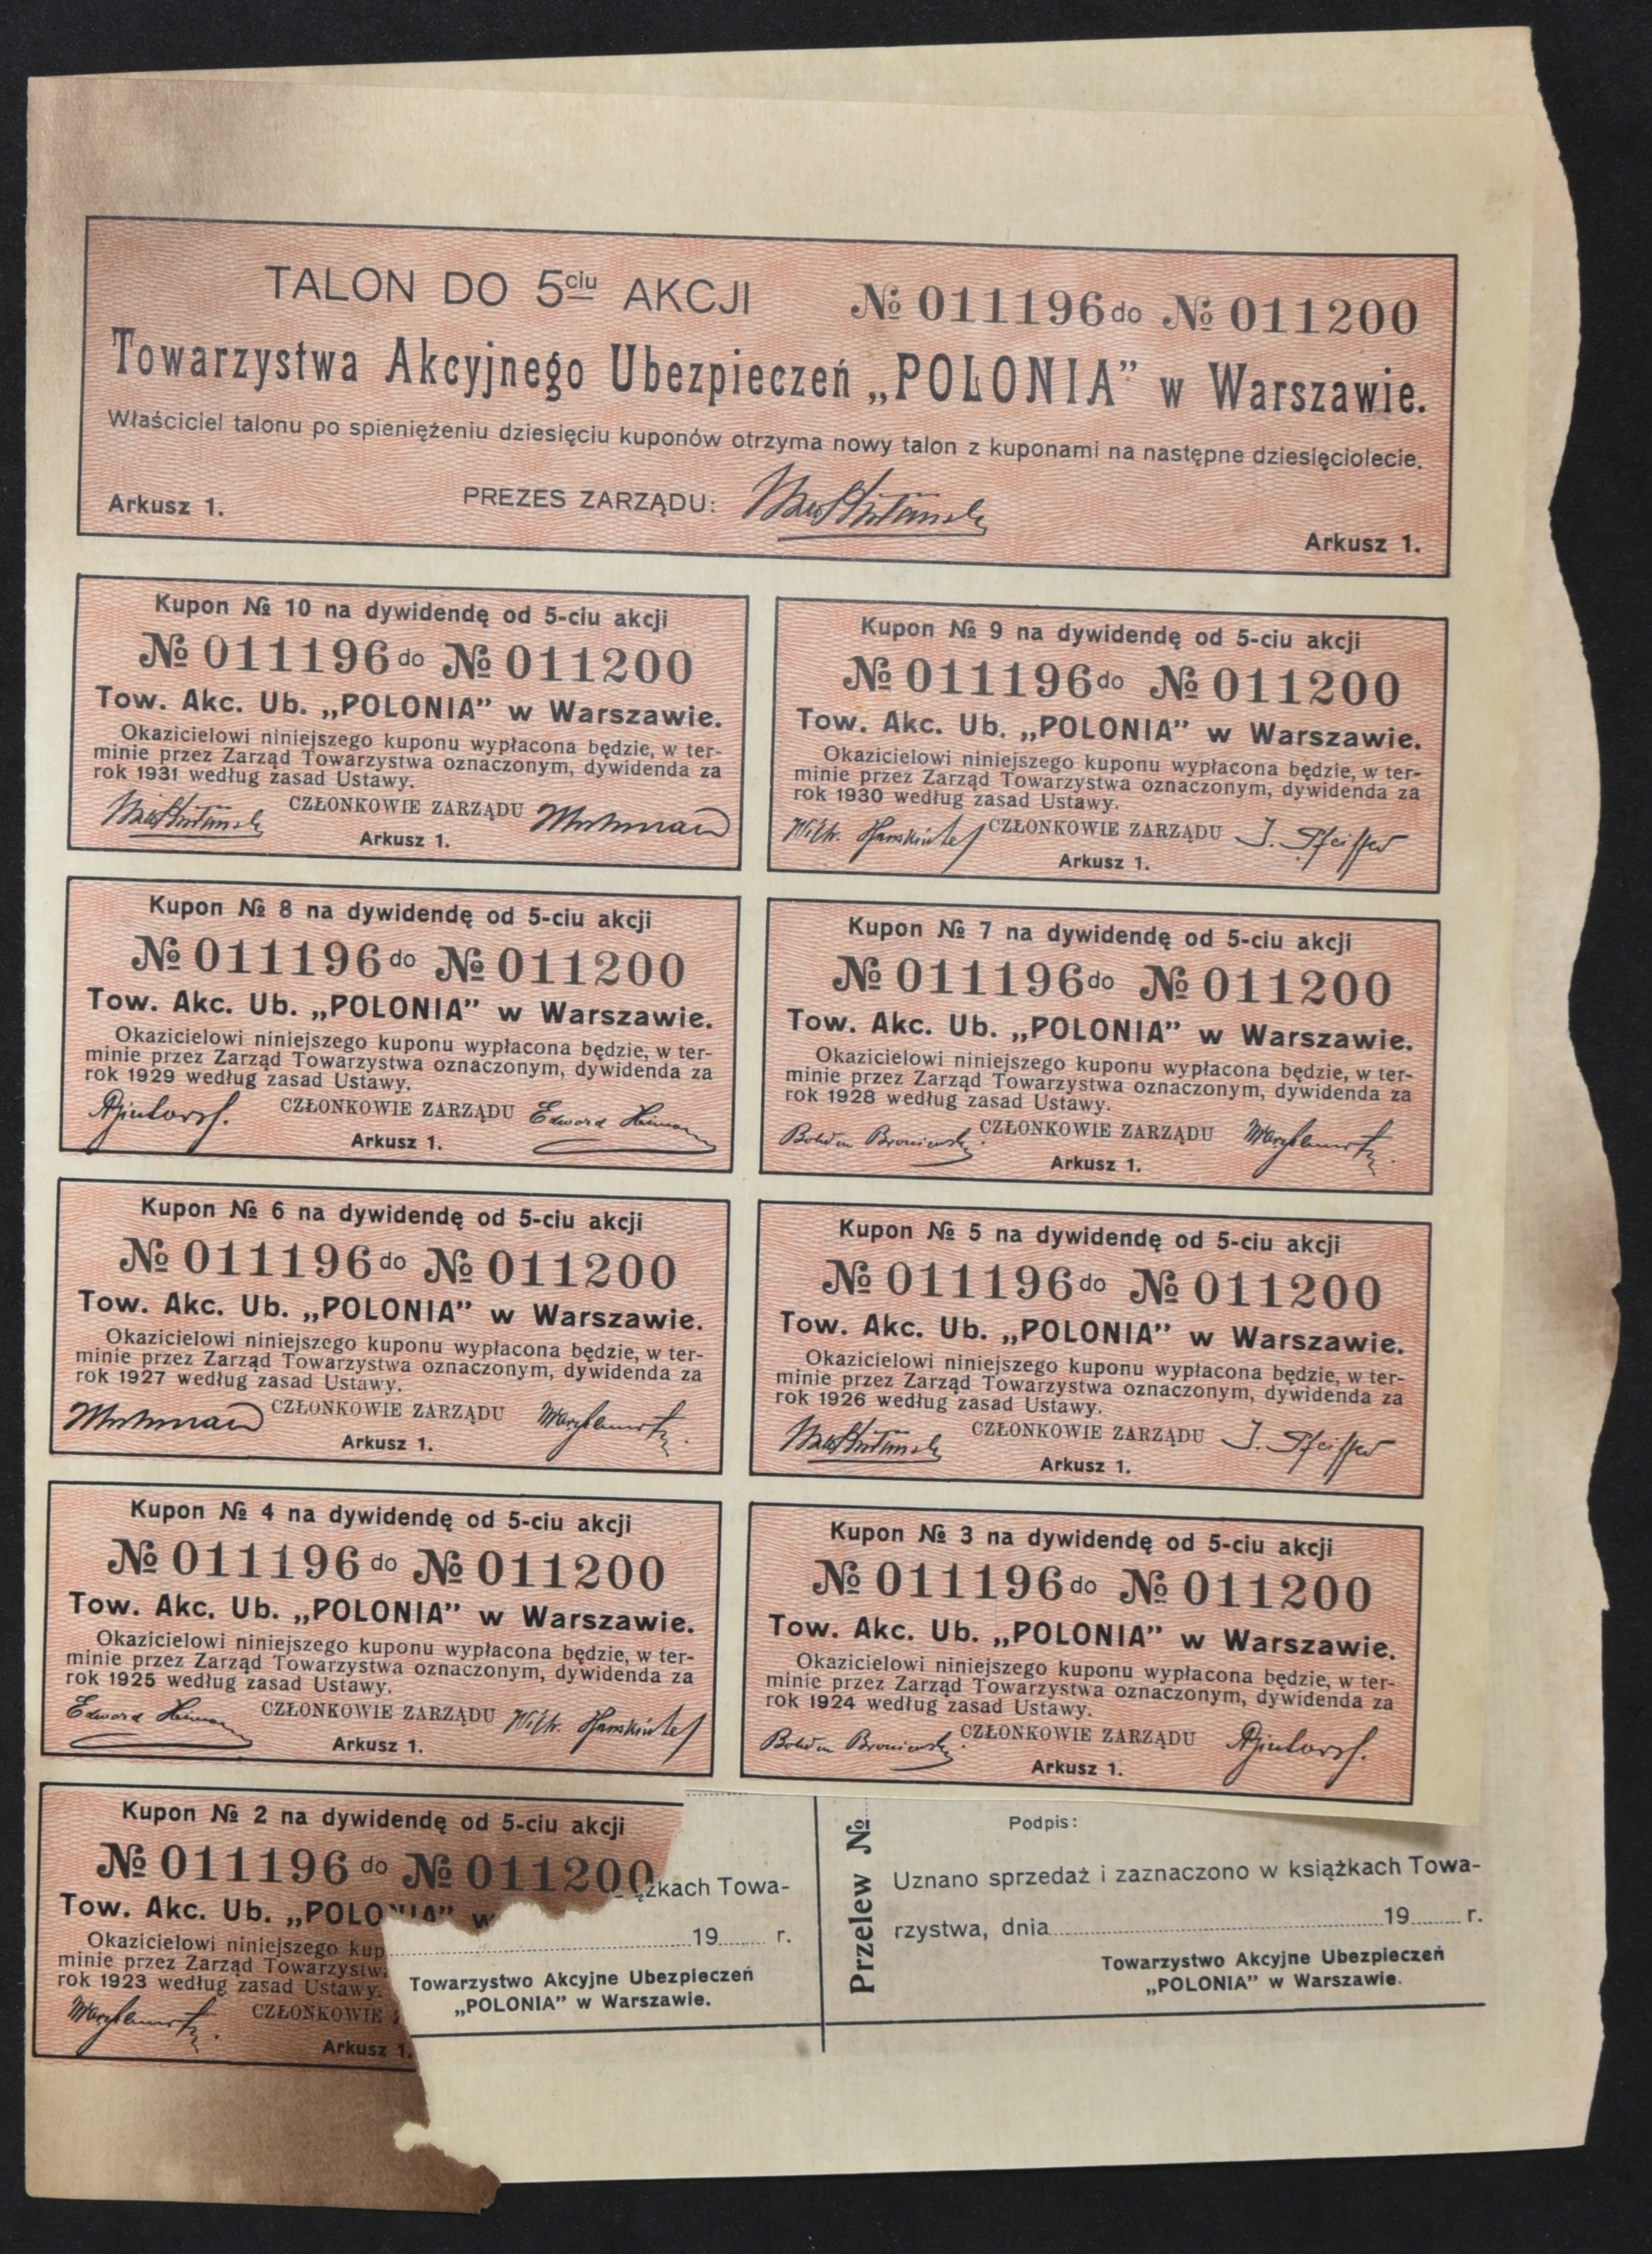 TALON DO 5ciu AKCJI № 011196 do № 011200
Towarzystwa Akcyjnego Ubezpieczeń „POLONIA” w Warszawie.
Właściciel talonu po spieniężeniu dziesięciu kuponów otrzyma nowy talon z kuponami na następne dziesięciolecie.
PREZES ZARZĄDU:
Arkusz 1.
Arkusz 1.
Kupon № 10 na dywidendę od 5-ciu akcji
№ 011196 do № 011200
Tow. Akc. Ub. „POLONIA” w Warszawie.
Okazicielowi niniejszego kuponu wypłacona będzie, w ter-
minie przez Zarząd Towarzystwa oznaczonym, dywidenda za
rok 1931 według zasad Ustawy.
CZŁONKOWIE ZARZĄDU
Arkusz 1.
Kupon № 9 na dywidendę od 5-ciu akcji
№ 011196 do № 011200
Tow. Akc. Ub. „POLONIA” w Warszawie.
Okazicielowi niniejszego kuponu wypłacona będzie, w ter-
minie przez Zarząd Towarzystwa oznaczonym, dywidenda za
rok 1930 według zasad Ustawy.
CZŁONKOWIE ZARZĄDU J. Pfeiffer
Arkusz 1.
Kupon № 8 na dywidendę od 5-ciu akcji
№ 011196 do № 011200
Tow. Akc. Ub. „POLONIA” w Warszawie.
Okazicielowi niniejszego kuponu wypłacona będzie, w ter-
minie przez Zarząd Towarzystwa oznaczonym, dywidenda za
rok 1929 według zasad Ustawy.
CZŁONKOWIE ZARZĄDU Edward
Arkusz 1.
Kupon № 7 na dywidendę od 5-ciu akcji
№ 011196 do № 011200
Tow. Akc. Ub. „POLONIA” w Warszawie.
Okazicielowi niniejszego kuponu wypłacona będzie, w ter-
minie przez Zarząd Towarzystwa oznaczonym, dywidenda za
rok 1928 według zasad Ustawy.
Bohdan Broniewski CZŁONKOWIE ZARZĄDU
Arkusz 1.
Kupon № 6 na dywidendę od 5-ciu akcji
№ 011196 do № 011200
Tow. Akc. Ub. „POLONIA” w Warszawie.
Okazicielowi niniejszego kuponu wypłacona będzie, w ter-
minie przez Zarząd Towarzystwa oznaczonym, dywidenda za
rok 1927 według zasad Ustawy.
CZŁONKOWIE ZARZĄDU
Arkusz 1.
Kupon № 5 na dywidendę od 5-ciu akcji
№ 011196 do № 011200
Tow. Akc. Ub. „POLONIA” w Warszawie.
Okazicielowi niniejszego kuponu wypłacona będzie, w ter-
minie przez Zarząd Towarzystwa oznaczonym, dywidenda za
rok 1926 według zasad Ustawy.
CZŁONKOWIE ZARZĄDU J. Pfeiffer
Arkusz 1.
Kupon № 4 na dywidendę od 5-ciu akcji
№ 011196 do № 011200
Tow. Akc. Ub. „POLONIA” w Warszawie.
Okazicielowi niniejszego kuponu wypłacona będzie, w ter-
minie przez Zarząd Towarzystwa oznaczonym, dywidenda za
rok 1925 według zasad Ustawy.
Edward CZŁONKOWIE ZARZĄDU
Arkusz 1.
Kupon № 3 na dywidendę od 5-ciu akcji
№ 011196 do № 011200
Tow. Akc. Ub. „POLONIA” w Warszawie.
Okazicielowi niniejszego kuponu wypłacona będzie, w ter-
minie przez Zarząd Towarzystwa oznaczonym, dywidenda za
rok 1924 według zasad Ustawy.
Bohdan Broniewski CZŁONKOWIE ZARZĄDU
Arkusz 1.
Kupon № 2 na dywidendę od 5-ciu akcji
№ 011196 do № 011200
Tow. Akc. Ub. „POLONIA” w
Okazicielowi niniejszego kup
minie przez Zarząd Towarzystwa
rok 1923 według zasad Ustawy.
CZŁONKOWIE
Arkusz 1.
żkach Towa-
19 r.
Towarzystwo Akcyjne Ubezpieczeń
„POLONIA” w Warszawie.
Przelew №
Podpis:
Uznano sprzedaż i zaznaczono w książkach Towa-
rzystwa, dnia 19 r.
Towarzystwo Akcyjne Ubezpieczeń
„POLONIA” w Warszawie.